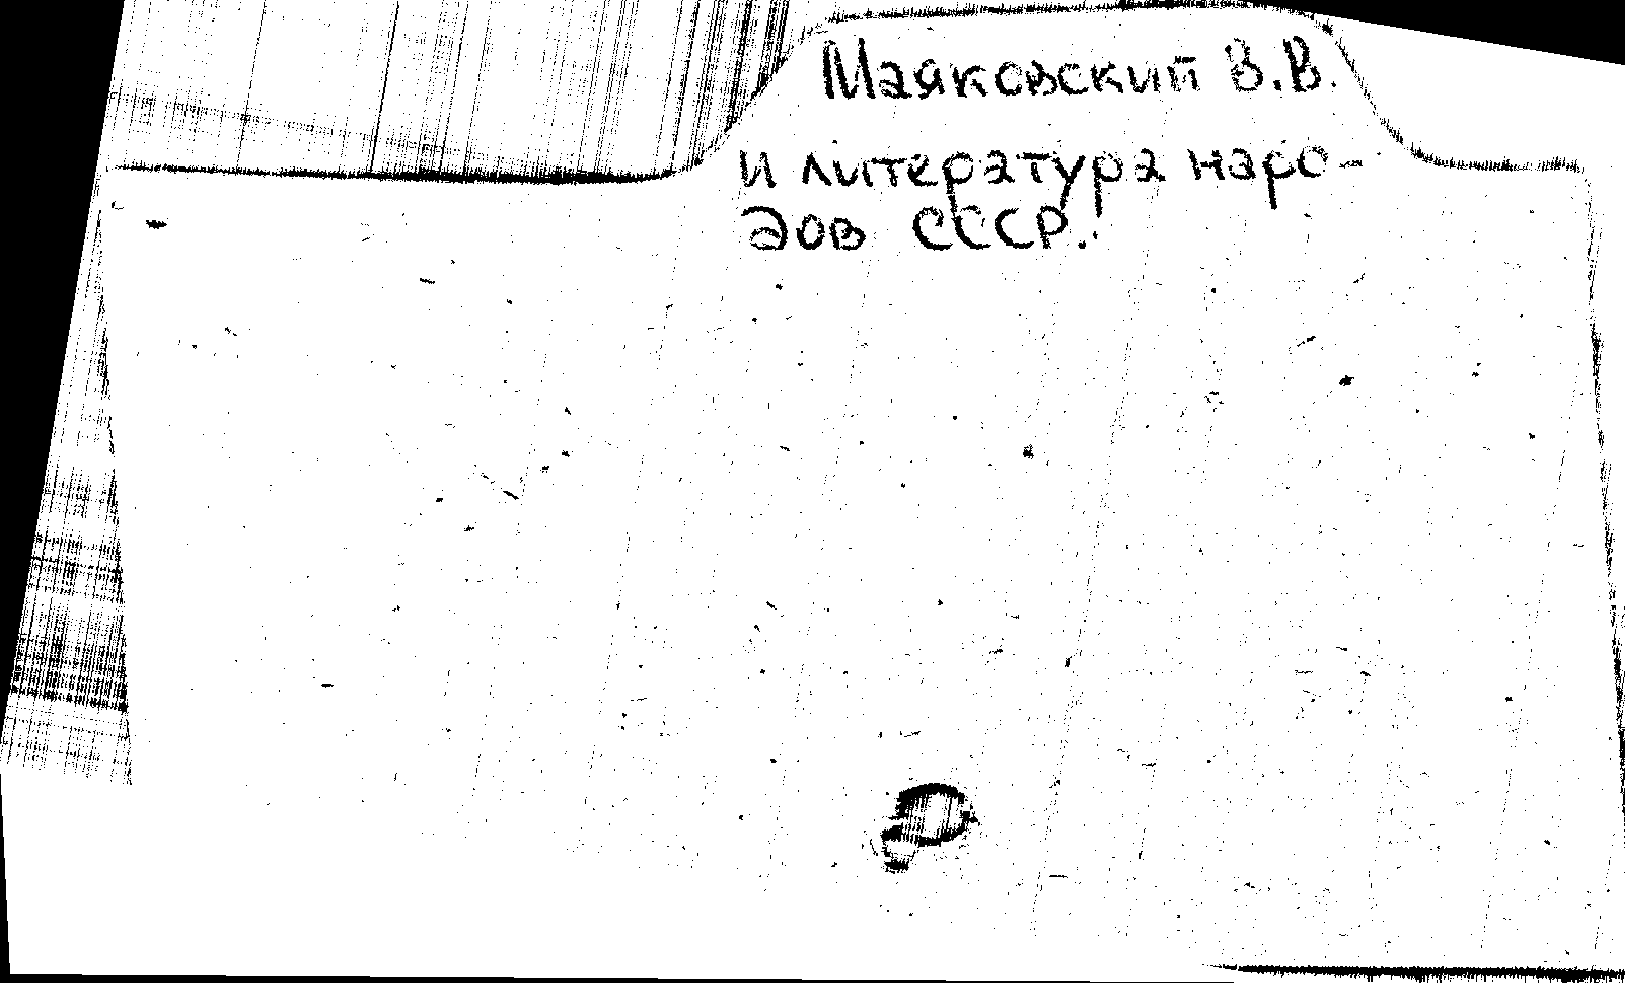 Маяковский В.В.
и литература наро-
дов СССР.